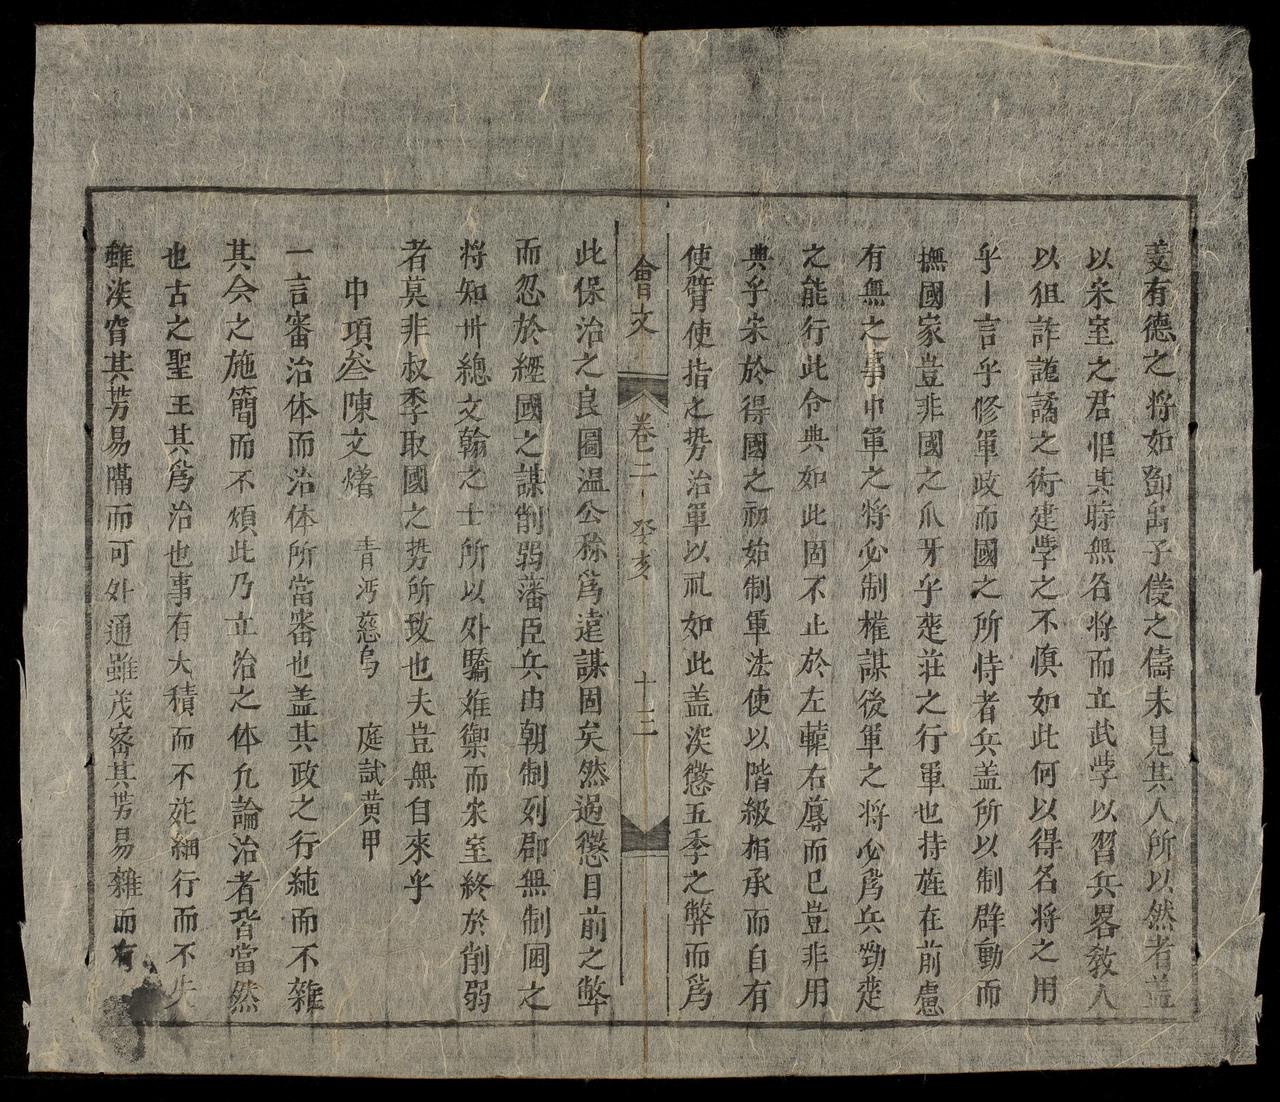 有德之將如鄧禹子儀之儔未見其人所以然者盖
以宋室之君非其時無名将而立武斈以習兵畧教人
以狙詐詭譎之術建斈之不慎如此何以得名将之用
乎一言乎修軍政而國之所恃者兵盖所以制辟動而
撫國家豈非國之爪牙乎楚荘之行軍也持旌在前慮
有無之事中軍之将必制權謀後軍之将必為兵勁楚
之能行此令典如此固不止於左轅右蓐而已豈非用
典乎宋於得國之初始制軍法使以階級相承而自有
使臂使指之势治軍以礼如此盖深懲五季之弊而爲
會文 卷二 癸亥 十二
此保治之良圖温公称爲遠謀固矣然過懲目前之弊
而忽於經國之謀削弱藩臣兵由朝制列郡無制困之
将知卅總文翰之士所以外驕难禦而宋室終於削弱
者莫非叔季取國之势所致也夫豈無自來乎
中項叅陳文㷮 青沔慈烏 庭試黄甲
一言審治体而治体所當審也盖其政之行純而不雜
其令之施簡而不煩此乃立治之体凢論治者皆當然
也古之聖王其爲治也事有大積而不𬒗細行而不失
雖深窅其芳易瞞而可外通雖茂密其芳易雜而有